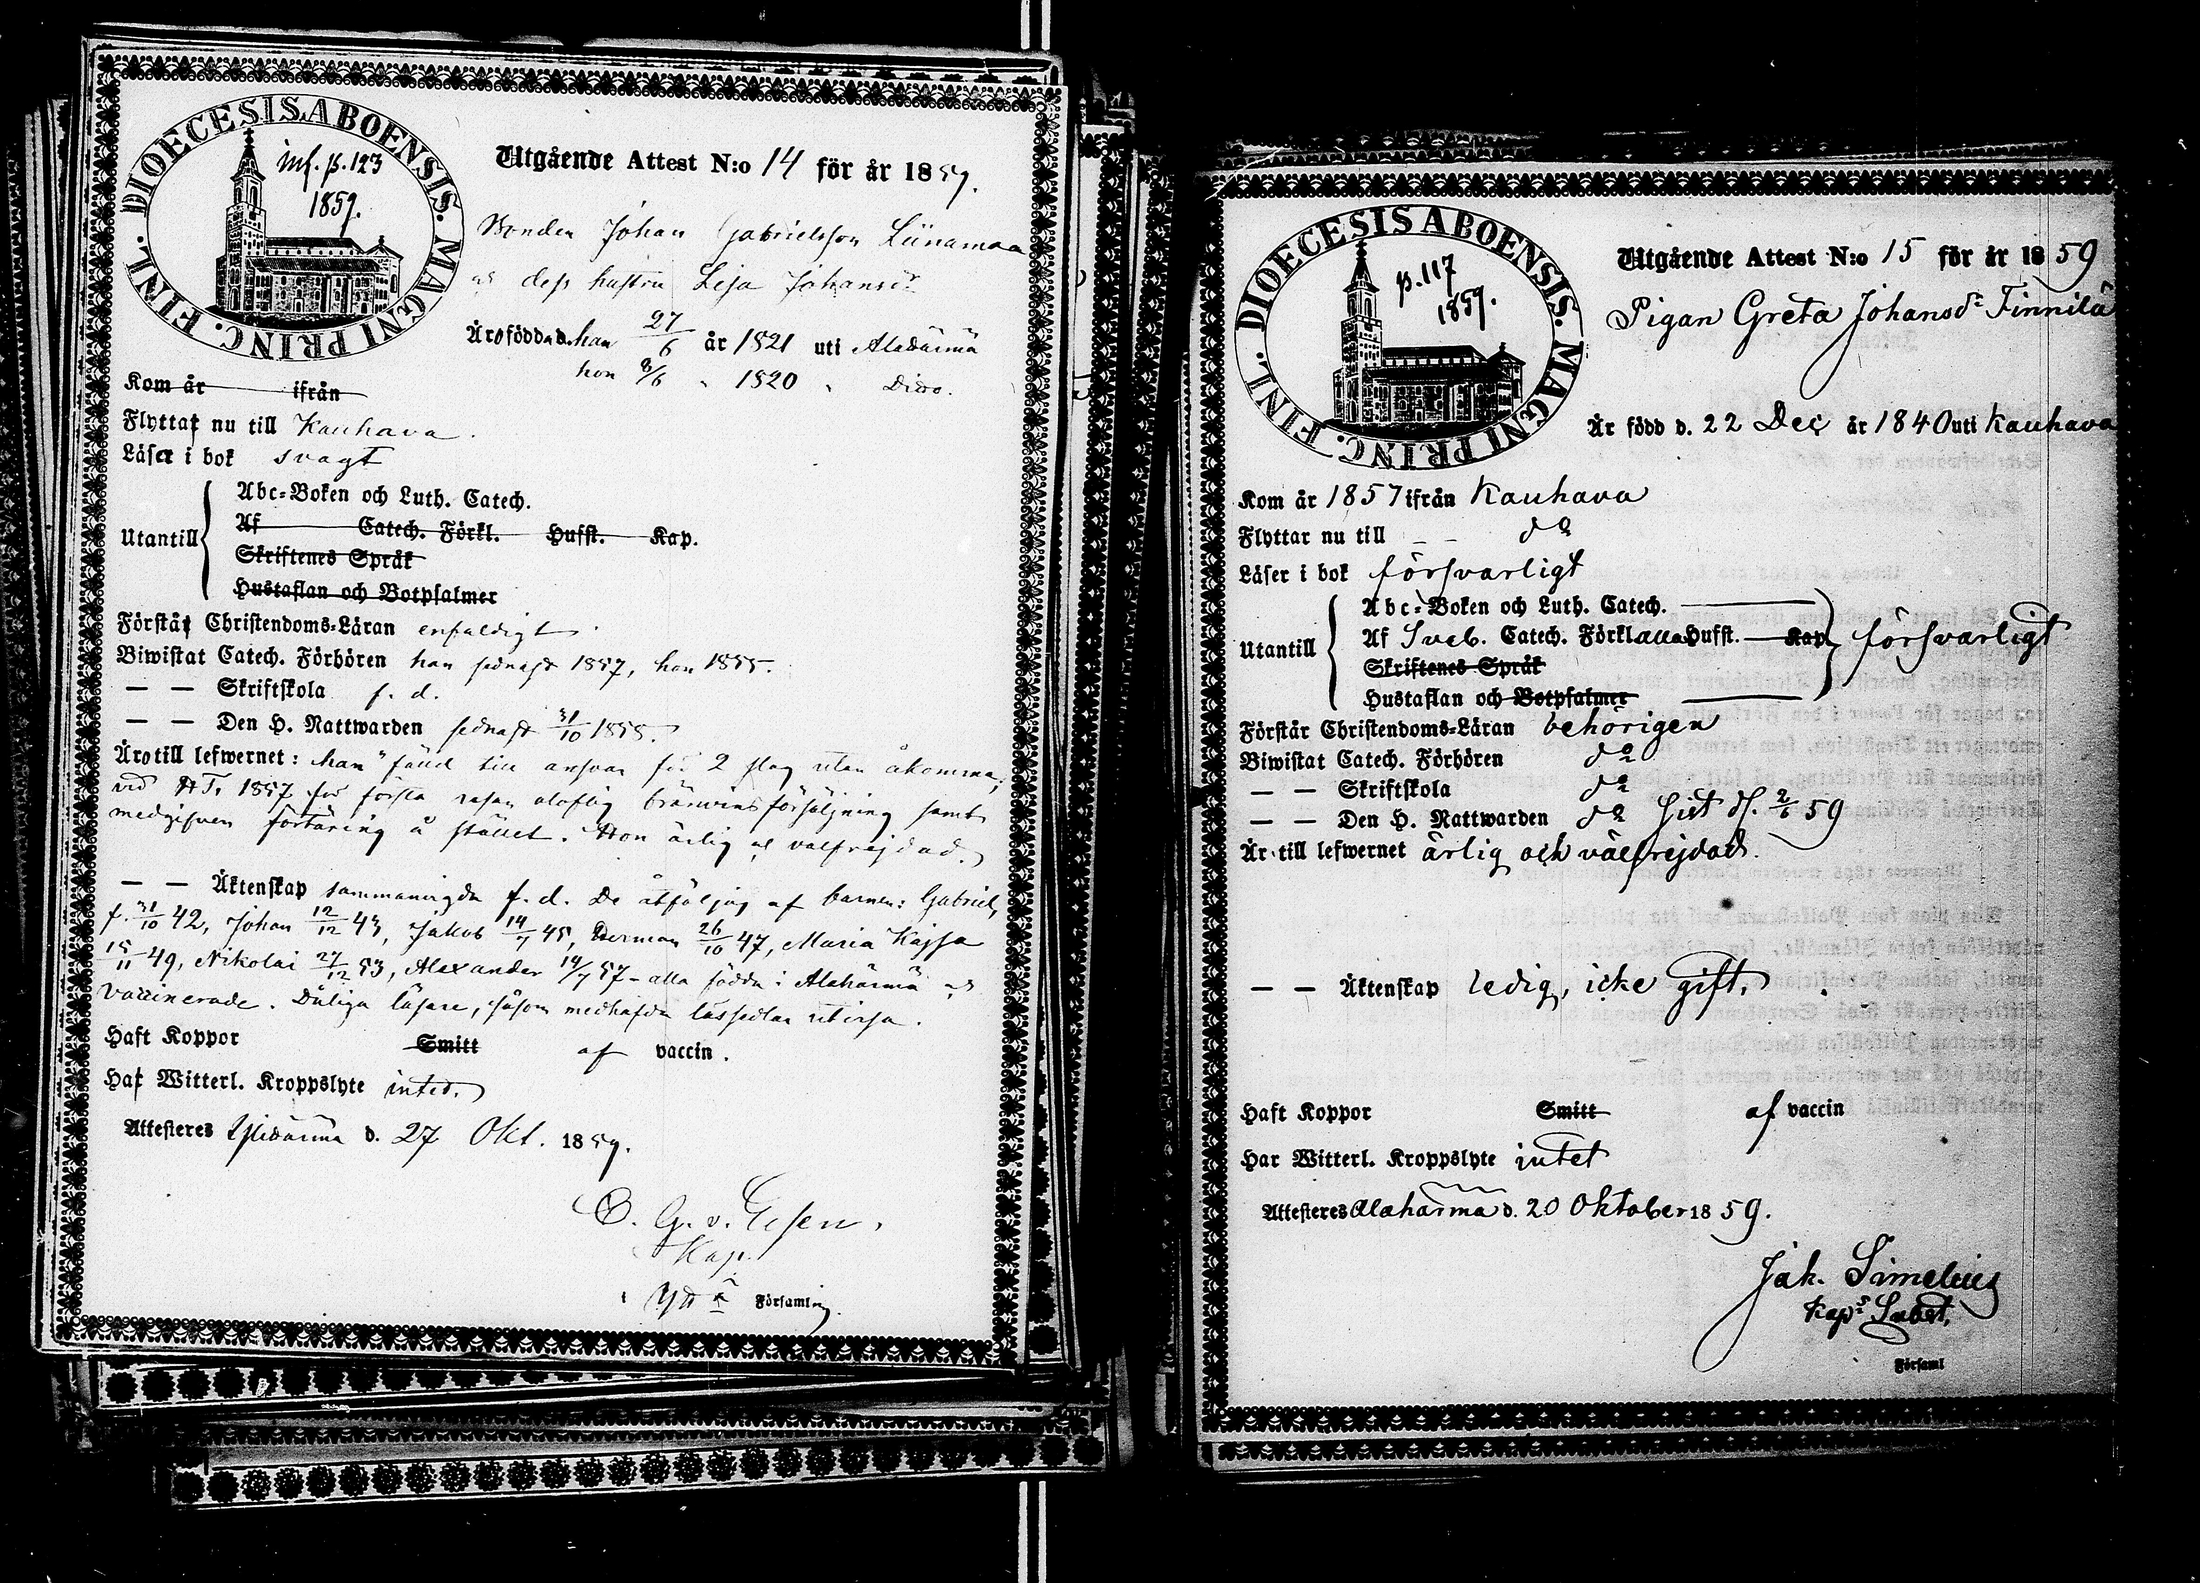 DIOECESIS ABOENSIS. MAGNI PRINC. FINL.
inf. p. 123
1859.
Utgående Attest N:o 14 för år 1859.
Bonden Johan Gabrielsson Liinamaa
och dess hustru Lisa Johansdr
Äro födda d. han 27/6 år 1821 uti Alahärmä
hon 8/6 " 1820 " Dito.
Kom år ifrån
Flytta nu till Kauhava.
Läser i bok svagt
Utantill
Abc-Boken och Luth. Catech.
Af Catech. Förkl. Hufst. Kap.
Skriftenes Språk
Hustaflan och Botpsalmer
Förstå Christendoms-Läran enfaldigt.
Biwistat Catech. Förhören han sednast 1857, hon 1855.
— — Skriftskola f. d.
— — Den H. Nattwarden sednast 31/10 1858.
Äro till lefwernet: han fälld till answar för 2 slag utan åkomma,
vid HT. 1857 för första resan olaflig bränvinsförsäljning samt
medgifven förtäring å stället. Hon ärlig och välfrejdad.
— — Äktenskap sammanvigda f. d. De åtföljas af barnen: Gabriel,
f. 31/10 42, Johan 12/12 43, Jakob 14/7 45, Herman 26/10 47, Maria Kajsa
15/11 49, Nikolai 27/12 53, Alexander 14/7 57 - alla födda i Alahärmä och
vaccinerade. Dåliga läsare, såsom medhafda lässedlar utvisa.
Haft Koppor Smitt af vaccin.
Ha Witterl. Kroppslyte intet.
Attesteres Ylihärmä d. 27 Okt. 1859.
O. G. v. Essen,
Kap.
i Församling.
DIOECESIS ABOENSIS. MAGNI PRINC. FINL.
p. 117
1859.
Utgående Attest N:o 15 för år 1859
Pigan Greta Johansdr Finnilä
Är född d. 22 Dec år 1840 uti Kauhava
Kom år 1857 ifrån Kauhava
Flyttar nu till — — do
Läser i bok försvarligt
Utantill
Abc-Boken och Luth. Catech.
Af Sveb. Catech. Förkl alla Hufst. Kap. försvarligt
Skriftenes Språk
Hustaflan och Botpsalmer
Förstår Christendoms-Läran behörigen
Biwistat Catech. Förhören do
— — Skriftskola do
— — Den H. Nattwarden do sist d. 2/6 59
Är till lefwernet ärlig och välfrejdad.
— — Äktenskap ledig, icke gift.
Haft Koppor Smitt af vaccin
Har Witterl. Kroppslyte intet
Attesteres Alahärmä d. 20 Oktober 1859.
Jak. Simelius
Kaps Subst.
Församl